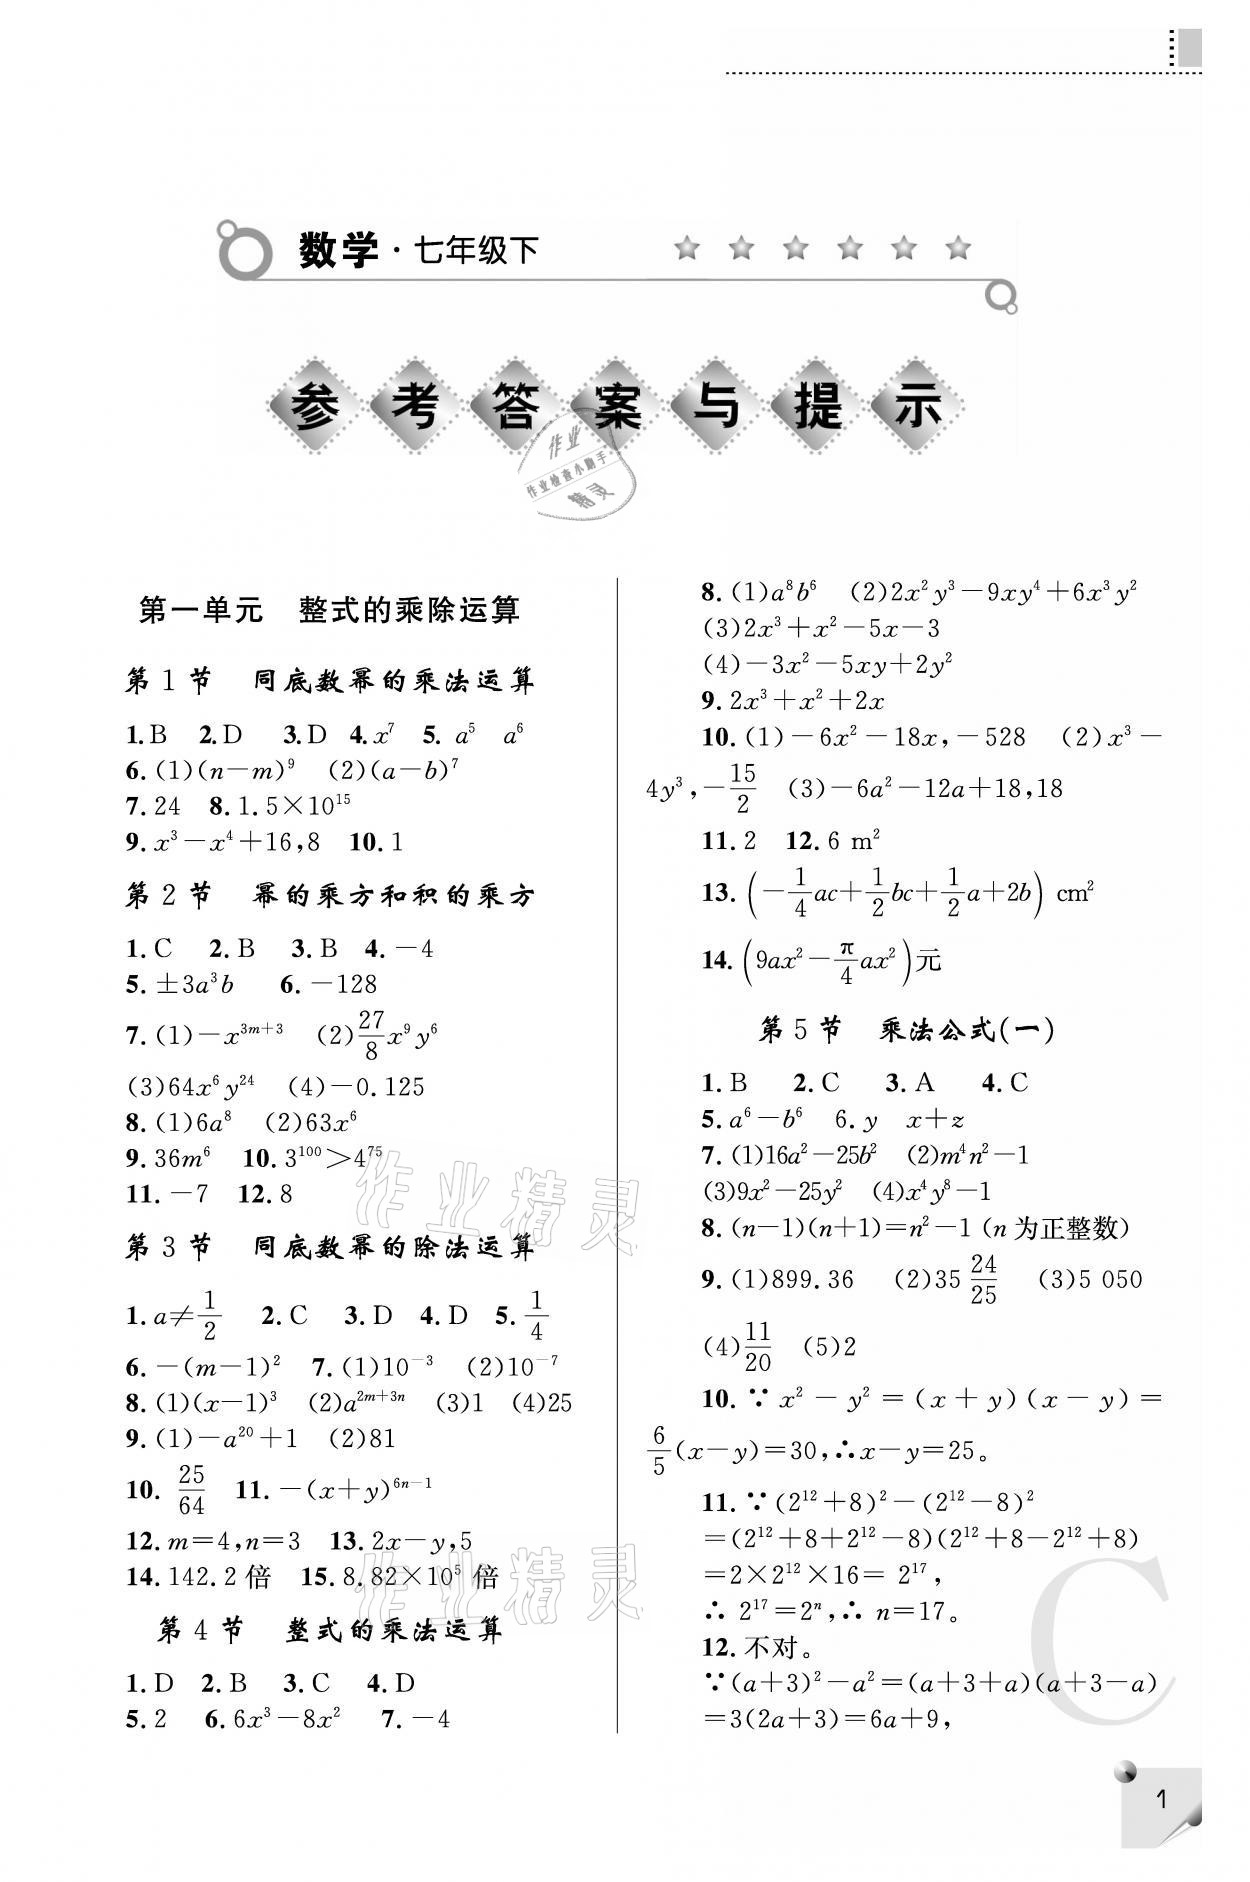 数学·七年级下
参考答案与提示
作业
作业检查小助手
精灵
第一单元 整式的乘除运算
第 1 节 同底数幂的乘法运算
1.B 2.D 3.D 4.x⁷ 5. a⁵ a⁶
6.(1)(n-m)⁹ (2)(a-b)⁷
7.24 8.1.5×10¹⁵
9.x³-x⁴+16,8 10.1
第 2 节 幂的乘方和积的乘方
1.C 2.B 3.B 4.-4
5.±3a³b 6.-128
7.(1)-x³ᵐ⁺³ (2)27/8x⁹y⁶
(3)64x⁶y²⁴ (4)-0.125
8.(1)6a⁸ (2)63x⁶
9.36m⁶ 10.3¹⁰⁰>4⁷⁵
11.-7 12.8
第 3 节 同底数幂的除法运算
1.a≠1/2 2.C 3.D 4.D 5.1/4
6.-(m-1)² 7.(1)10⁻³ (2)10⁻⁷
8.(1)(x-1)³ (2)a²ᵐ⁺³ⁿ (3)1 (4)25
9.(1)-a²⁰+1 (2)81
10. 25/64 11.-(x+y)⁶ⁿ⁻¹
12.m=4,n=3 13.2x-y,5
14.142.2倍 15.8.82×10⁵倍
第 4 节 整式的乘法运算
1.D 2.B 3.C 4.D
5.2 6.6x³-8x² 7.-4
8.(1)a⁸b⁶ (2)2x²y³-9xy⁴+6x³y²
(3)2x³+x²-5x-3
(4)-3x²-5xy+2y²
9.2x³+x²+2x
10.(1)-6x²-18x,-528 (2)x³-
4y³,-15/2 (3)-6a²-12a+18,18
11.2 12.6 m²
13.(-1/4ac+1/2bc+1/2a+2b) cm²
14.(9ax²-π/4ax²)元
第 5 节 乘法公式(一)
1.B 2.C 3.A 4.C
5.a⁶-b⁶ 6.y x+z
7.(1)16a²-25b² (2)m⁴n²-1
(3)9x²-25y² (4)x⁴y⁸-1
8.(n-1)(n+1)=n²-1 (n 为正整数)
9.(1)899.36 (2)35 24/25 (3)5 050
(4)11/20 (5)2
10.∵ x²-y²=(x+y)(x-y)=
6/5(x-y)=30,∴x-y=25。
11.∵(2¹²+8)²-(2¹²-8)²
=(2¹²+8+2¹²-8)(2¹²+8-2¹²+8)
=2×2¹²×16= 2¹⁷,
∴ 2¹⁷=2ⁿ,∴ n=17。
12.不对。
∵(a+3)²-a²=(a+3+a)(a+3-a)
=3(2a+3)=6a+9,
作业精灵
作业精灵
C
1